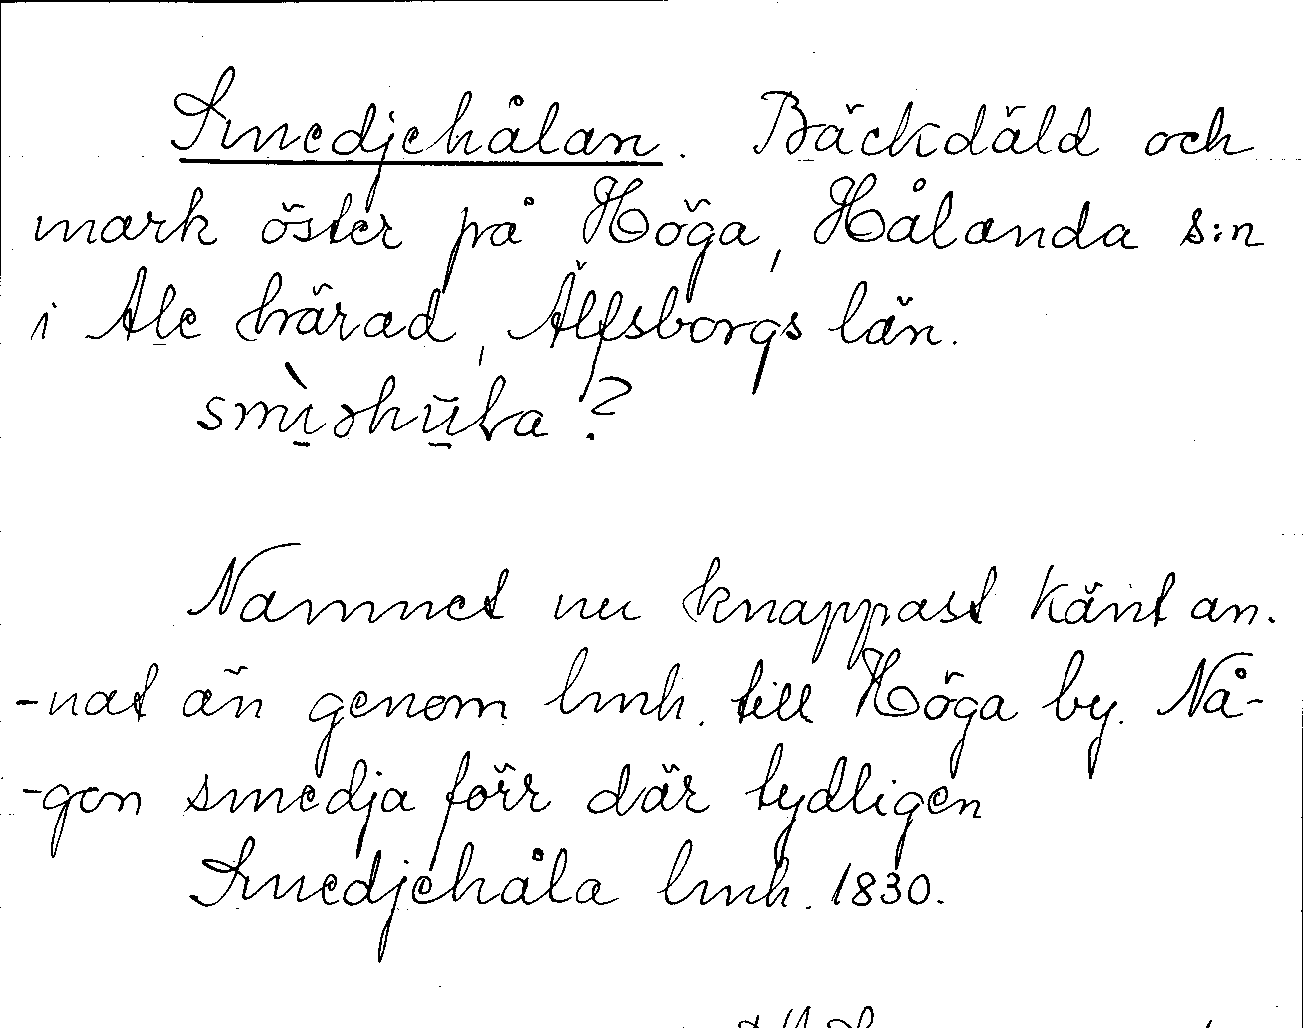 Smedjehålan. Bäckdäld och
mark öster på Höga, Hålanda s:n
i Ale härad, Älfsborgs län.
Namnet nu knappast känt an-
-nat än genom lmh. till Höga by. Nå-
-gon smedja förr där tydligen
Smedjehåla lmh. 1830.